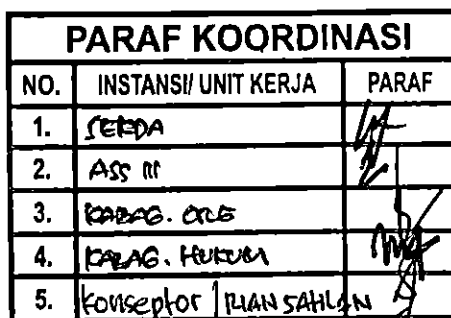 PARAF KOORDINASI
NO. INSTANSI/ UNIT KERJA PARAF
1. SEKDA
2. ASS III
3. KABAG. ORG
4. KABAG. HUKUM
5. Konseptor RIAN SAHLAN